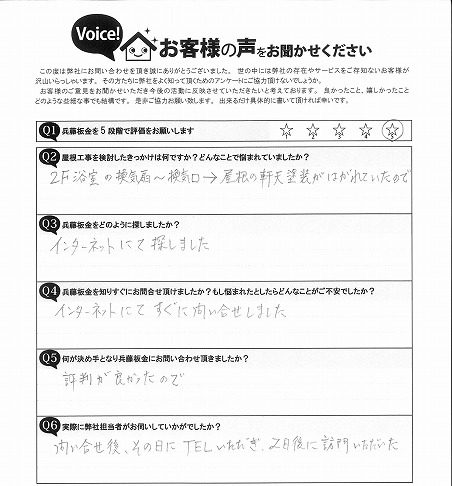 Voice!
お客様の声をお聞かせください
この度は弊社にお問い合わせを頂き誠にありがとうございました。 世の中には弊社の存在やサービスをご存知ないお客様が
沢山いらっしゃいます。 その方たちに弊社をよく知って頂くためのアンケートにご協力頂けないでしょうか。
お客様のご意見をお聞かせいただき今後の活動に反映させていただきたいと考えております。 良かったこと、嬉しかったこと
どのような些細な事でも結構です。 是非ご協力お願い致します。 出来るだけ具体的に書いて頂ければ幸いです。
Q1 兵藤板金を5段階で評価をお願いします
1 2 3 4 5
Q2 屋根工事を検討したきっかけは何ですか?どんなことで悩まれていましたか?
2F浴室の換気扇〜換気口→屋根の軒天塗装がはがれていたので
Q3 兵藤板金をどのように探しましたか?
インターネットにて探しました
Q4 兵藤板金を知りすぐにお問合せ頂けましたか?もし悩まれたとしたらどんなことがご不安でしたか?
インターネットにてすぐに問い合せしました
Q5 何が決め手となり兵藤板金にお問い合わせ頂きましたか?
評判が良かったので
Q6 実際に弊社担当者がお伺いしていかがでしたか?
問い合せ後、その日にTELいただき、2日後に訪門いただいた